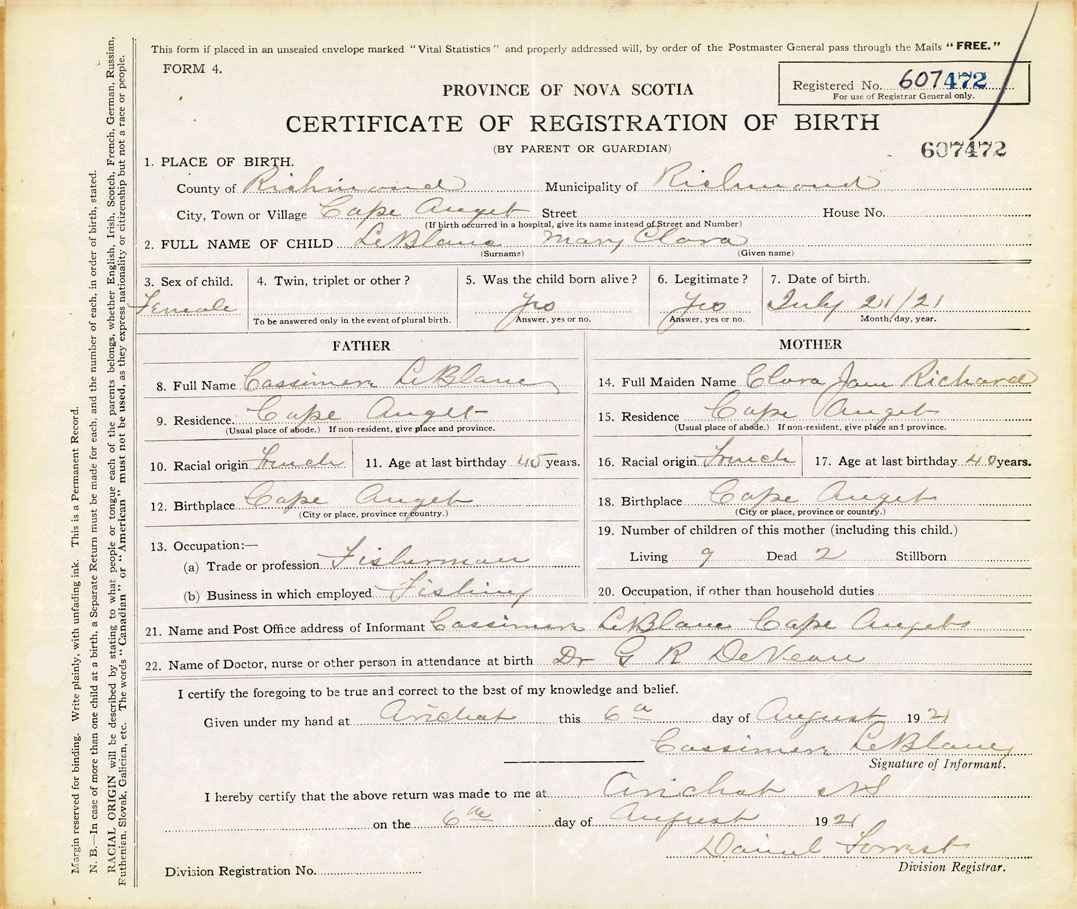 This form if placed in an unsealed envelope marked "Vital Statistics" and properly addressed will, by order of the Postmaster General pass through the Mails "FREE."
FORM 4.
Registered No. 607472
For use of Registrar General only.
PROVINCE OF NOVA SCOTIA
CERTIFICATE OF REGISTRATION OF BIRTH
(BY PARENT OR GUARDIAN)
607472
1. PLACE OF BIRTH.
County of Richmond Municipality of Richmond
City, Town or Village Cape Auget Street House No.
(If birth occurred in a hospital, give its name instead of Street and Number)
2. FULL NAME OF CHILD LeBlanc Mary Clora
(Surname) (Given name)
3. Sex of child. 4. Twin, triplet or other? 5. Was the child born alive? 6. Legitimate? 7. Date of birth.
Female yes yes July 21/21
To be answered only in the event of plural birth. Answer, yes or no. Answer, yes or no. Month, day, year.
FATHER
8. Full Name Cassimer LeBlanc
9. Residence. Cape Auget
(Usual place of abode.) If non-resident, give place and province.
10. Racial origin French 11. Age at last birthday 45 years.
12. Birthplace Cape Auget
(City or place, province or country.)
13. Occupation:—
(a) Trade or profession Fisherman
(b) Business in which employed Fishing
MOTHER
14. Full Maiden Name Clora Jane Richard
15. Residence Cape Auget
(Usual place of abode.) If non-resident, give place and province.
16. Racial origin French 17. Age at last birthday 40 years.
18. Birthplace Cape Auget
(City or place, province or country.)
19. Number of children of this mother (including this child.)
Living 9 Dead 2 Stillborn
20. Occupation, if other than household duties
21. Name and Post Office address of Informant Cassimer LeBlanc Cape Auget
22. Name of Doctor, nurse or other person in attendance at birth Dr G R DeVeau
I certify the foregoing to be true and correct to the best of my knowledge and belief.
Given under my hand at Arichat this 6th day of August 1921
Cassimer LeBlanc
Signature of Informant.
I hereby certify that the above return was made to me at Arichat NS
on the 6th day of August 1921
Daniel Forrest
Division Registrar.
Division Registration No.
Margin reserved for binding. Write plainly, with unfading ink. This is a Permanent Record.
N. B.—In case of more than one child at a birth, a Separate Return must be made for each, and the number of each, in order of birth, stated.
RACIAL ORIGIN will be described by stating to what people or tongue each of the parents belongs, whether English, Irish, Scotch, French, German, Russian,
Ruthenian, Slovak, Galician, etc. The words "Canadian" or "American" must not be used, as they express nationality or citizenship but not a race or people.